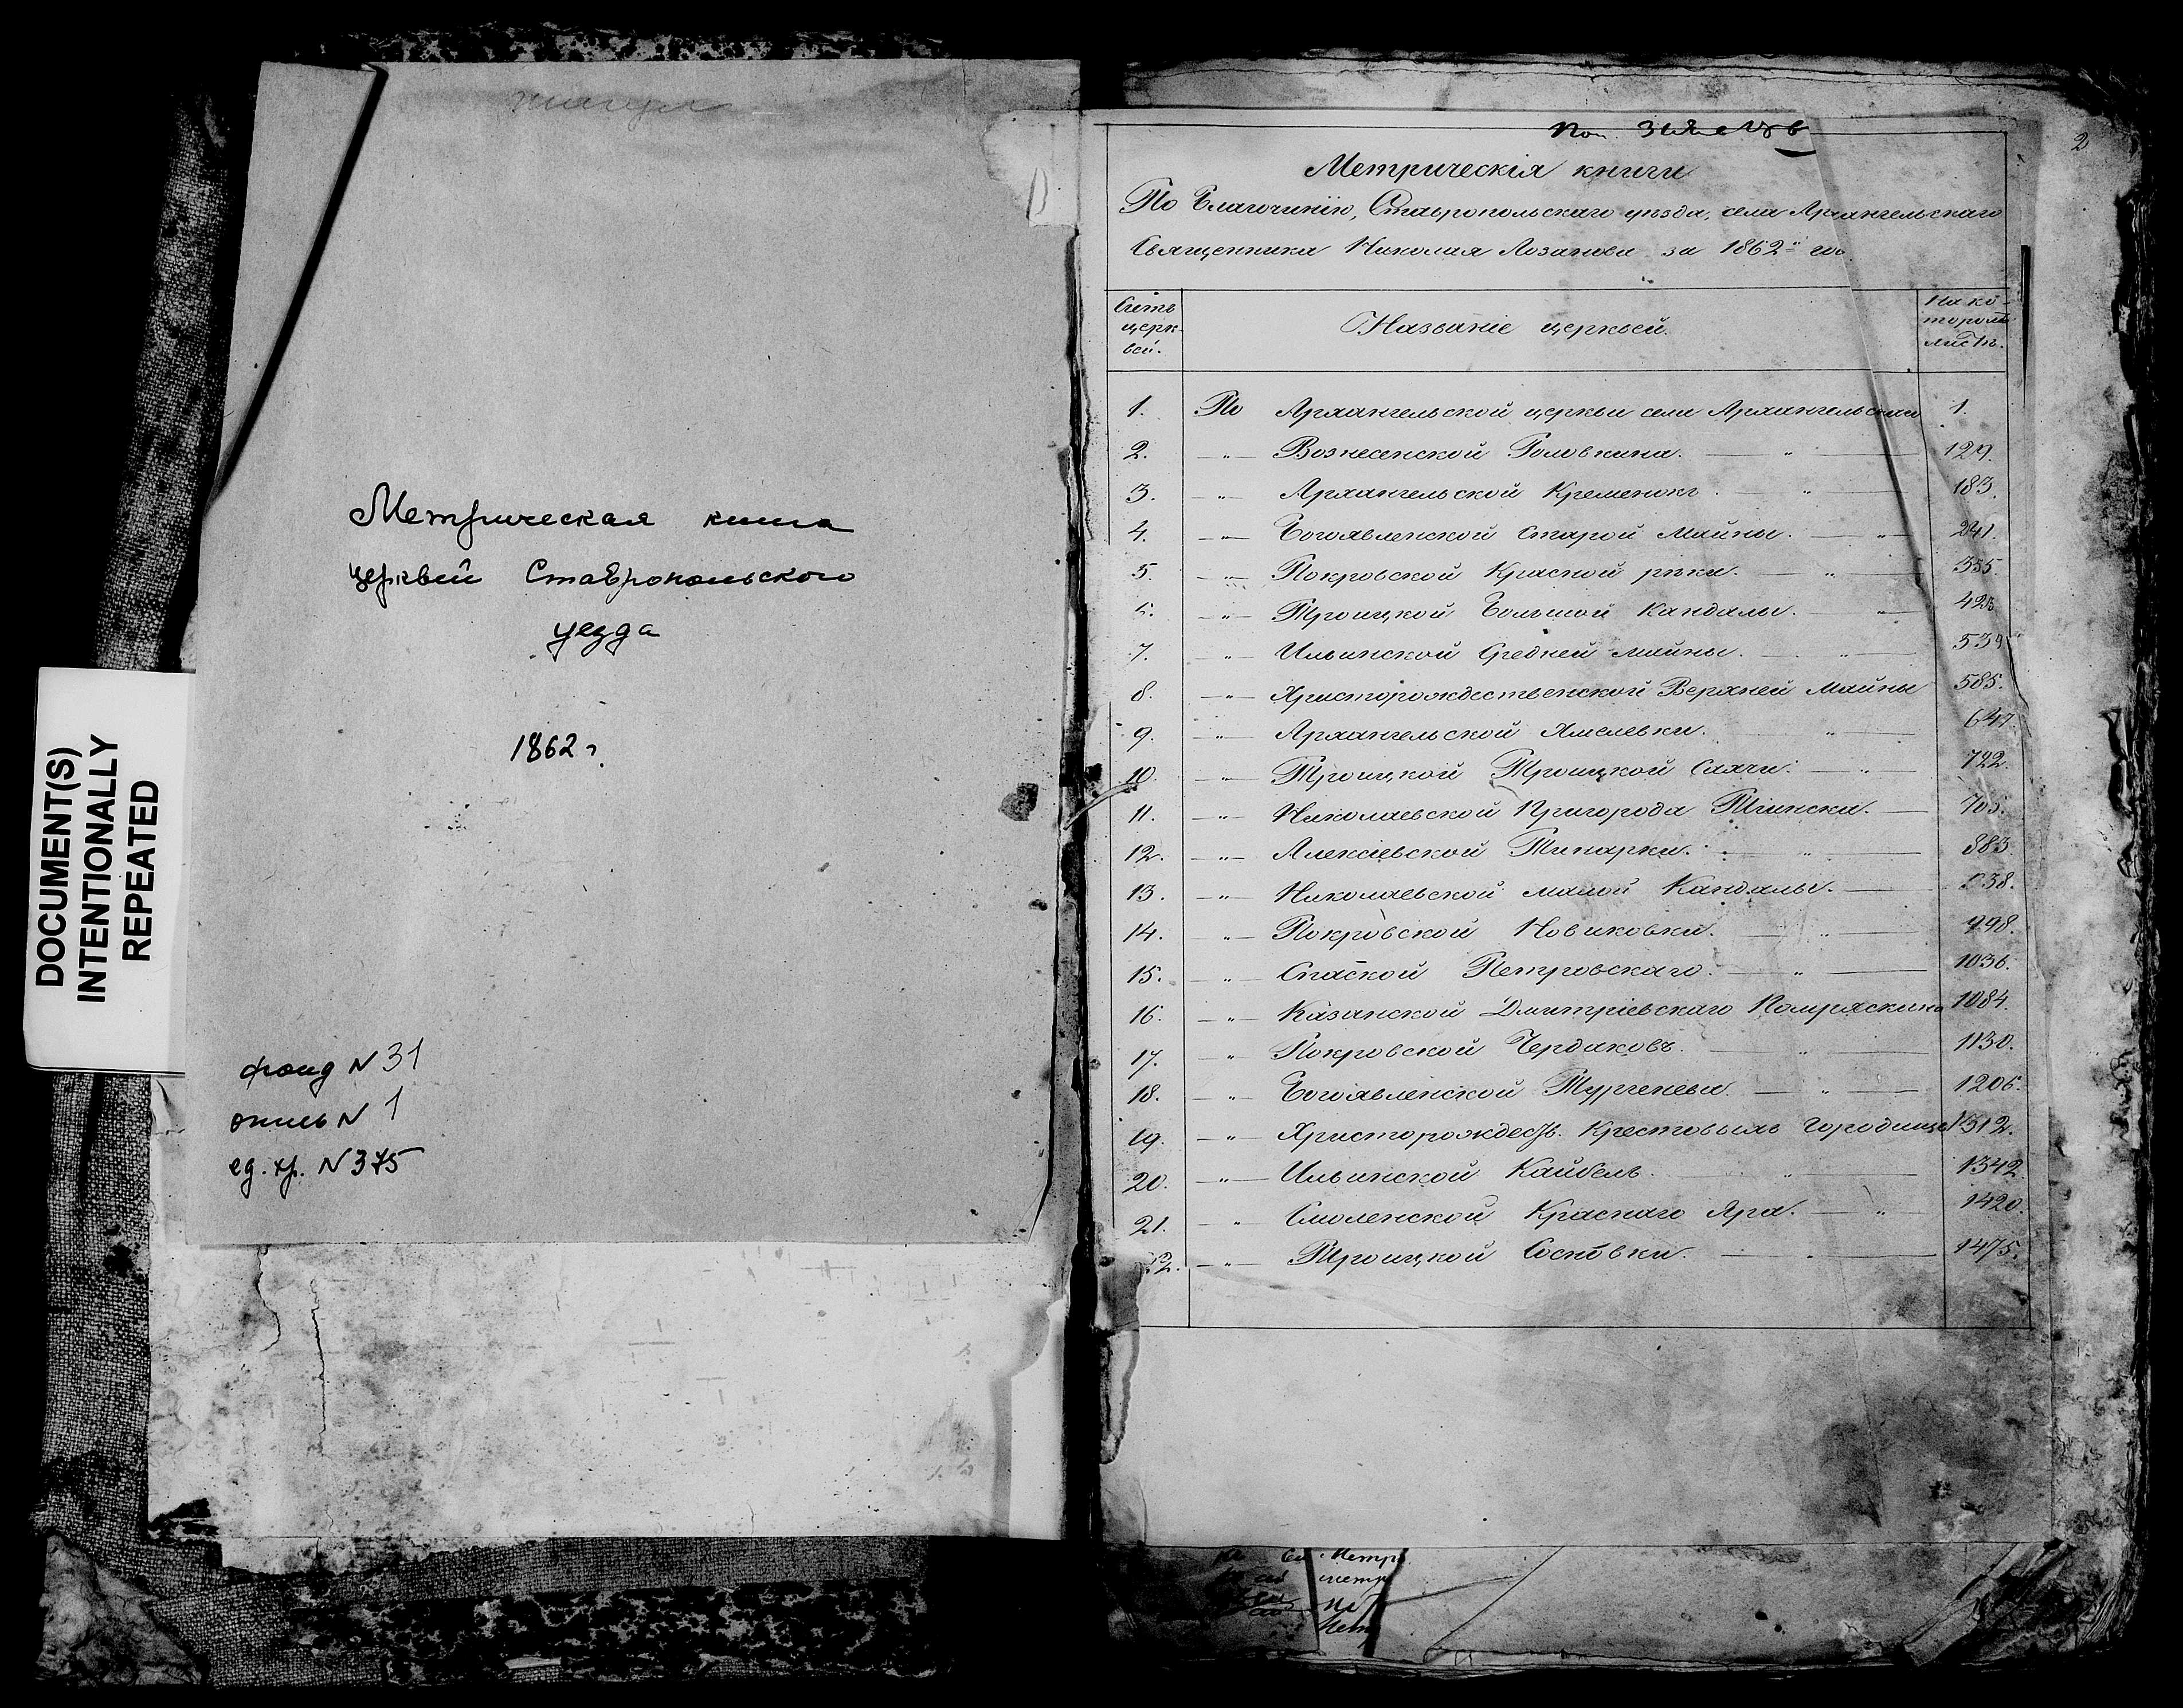 DOCUMENT(S)
INTENTIONALLY
REPEATED
Метрическая книга
церквей Ставропольского
уезда
1862 г.
фонд N 31
опись N 1
ед. хр. N 375
2
Метрическія книги
По Благочинію, Ставропольскаго уѣзда, села Архангельскаго
Священника Николая Лозанова за 1862й год.
Счетъ церк-вей.
Названіе церквей.
На ко-торомъ листѣ.
1. По Архангельской церкви села Архангельскаго 1.
2. —„— Вознесенской Головкина. — „ — 129.
3. —„— Архангельской Кременокъ. — „ — 183.
4. —„— Богоявленской Старой Майны. — „ — 241.
5. —„— Покровской Красной рѣки. — „ — 355.
6. —„— Троицкой Большой Кандалы. — „ 425
7. —„— Ильинской Средней Майны. — „ — 539
8. —„— Христорождественской Верхней Майны 585.
9. —„— Архангельской Хмелевки. „ — 647.
10. —„— Троицкой Троицкой Сахчи. — „ — 722.
11. —„— Николаевской Пригорода Тіинска. —
12. —„— Алексіевской Тинарки. — „ — 883.
13. —„— Николаевской малой Кандалы. — 938.
14. —„— Покровской Новиковки. — „ — 998.
15. —„— Спаской Петровскаго. — „ — 1036.
16. —„— Казанской Дмитріевскаго Помряскина 1084.
17. —„— Покровской Чердаковъ. — „ — 1130.
18. —„— Богоявленской Тургенева. — „ — 1206.
19. —„— Христорождеств. Крестовыхъ Городищъ 1312.
20. —„— Ильинской Кайбелъ. „ — 1342.
21. —„— Смоленской Краснаго Яра. — „ 1420.
22. —„— Троицкой Сосновки. — 1475.